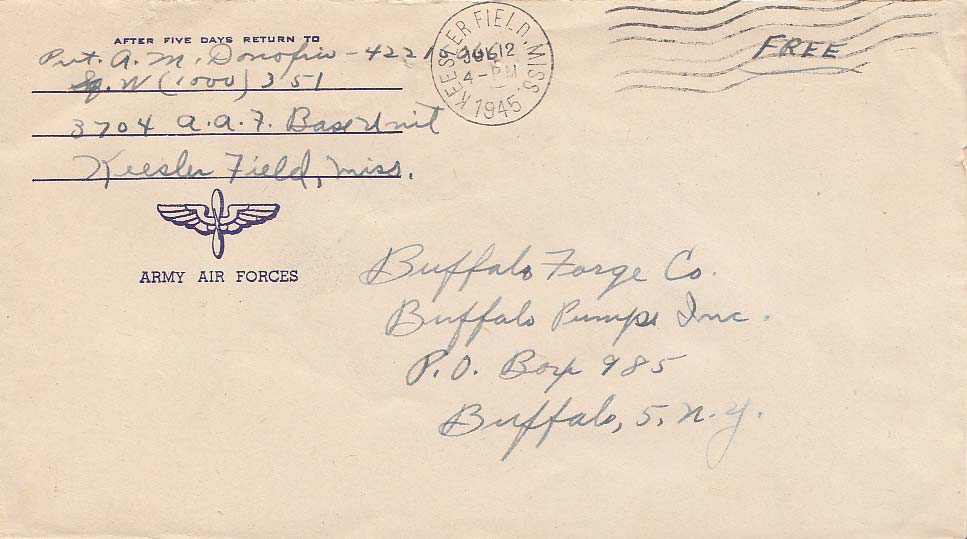 AFTER FIVE DAYS RETURN TO
Pvt. A. M. Donofrio - 4221
Sq. W (1000) 351
3704 A.A.F. Base Unit
Keesler Field, Miss.
ARMY AIR FORCES
KEESLER FIELD, MISS.
JUL 12
4-PM
1945
FREE
Buffalo Forge Co.
Buffalo Pumps Inc.
P.O. Box 985
Buffalo, 5, N.Y.